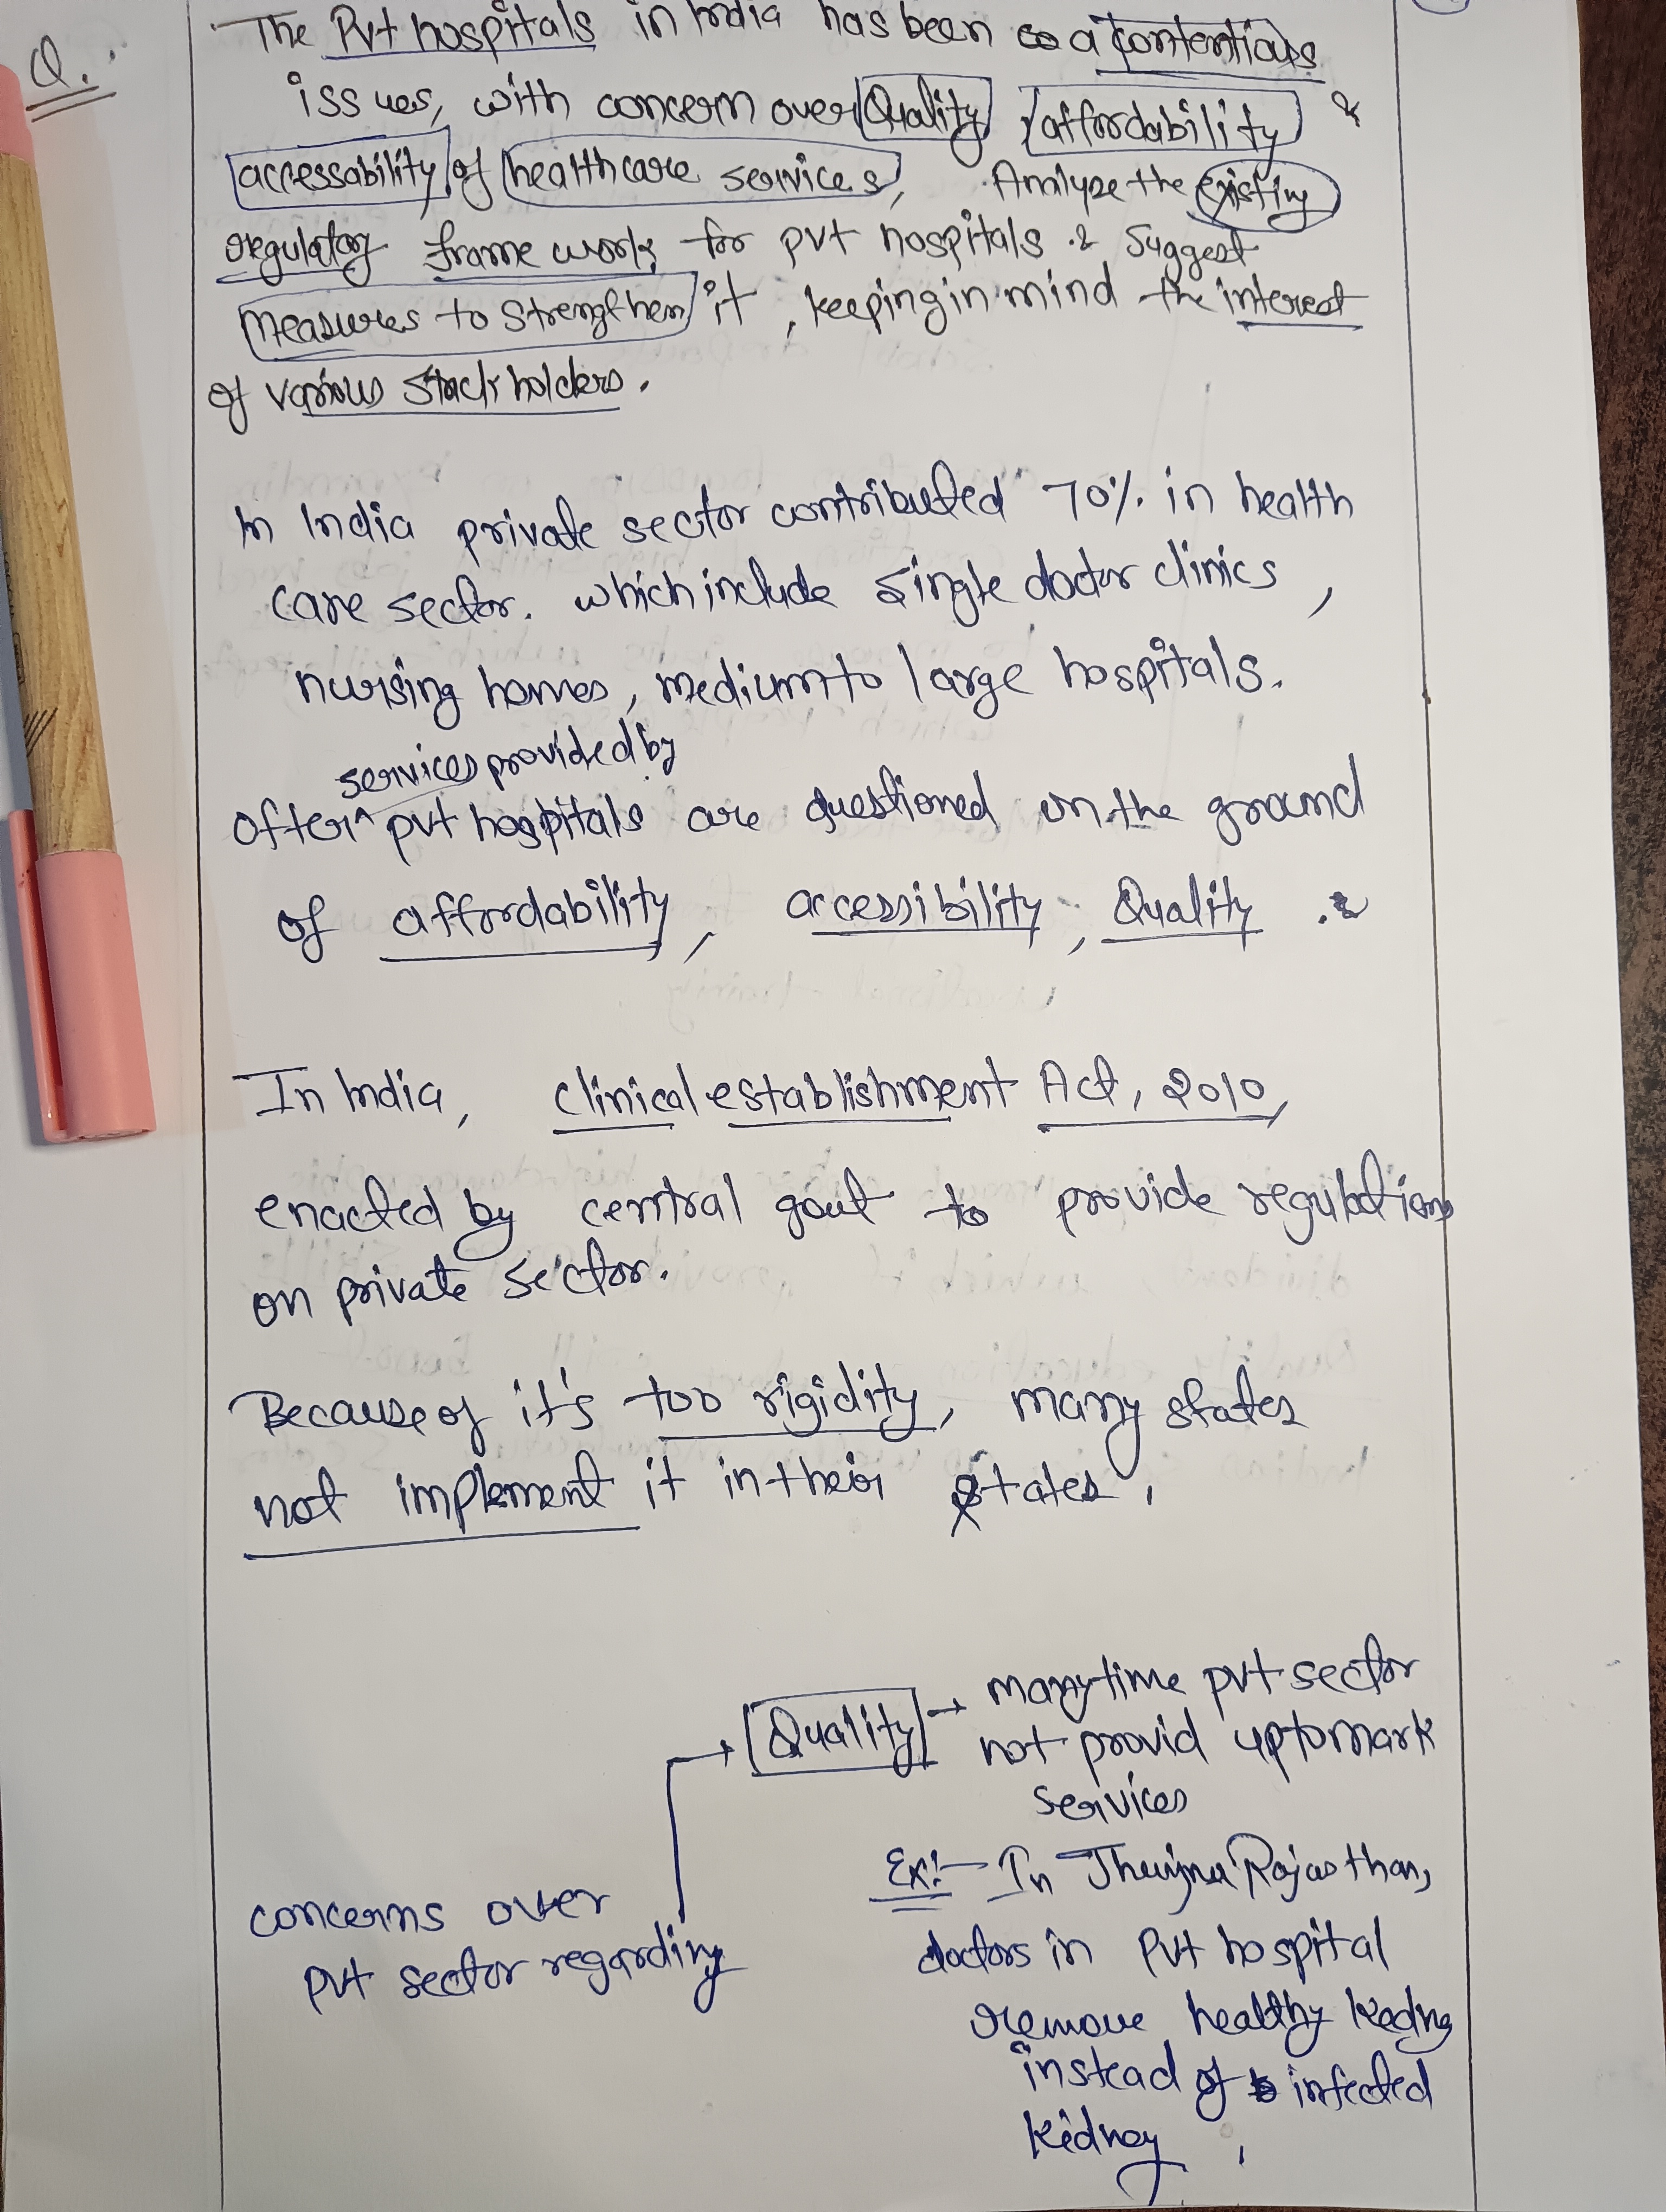 Q.
The Pvt hospitals in India has been a contentious
issues, with concern over Quality, affordability &
accessability of healthcare services, Analyze the existing
regulatory frame work for pvt hospitals & suggest
Measures to strengthen it, keeping in mind the interest
of various stack holders.
In India private sector contributed 70% in health
care sector. which include single doctor clinics,
nursing homes, medium to large hospitals.
services provided by
often ^ pvt hospitals are questioned on the ground
of affordability, accessibility, Quality.
In India, clinical establishment Act, 2010,
enacted by central govt to provide regulations
on private sector.
Because of it's too rigidity, many states
not implement it in their states.
Quality → many time pvt sector
not provid upto mark
services
Ex:- In Rajasthan,
concerns over
pvt sector regarding
doctors in Pvt hospital
remove healthy
instead of infected
kidney.